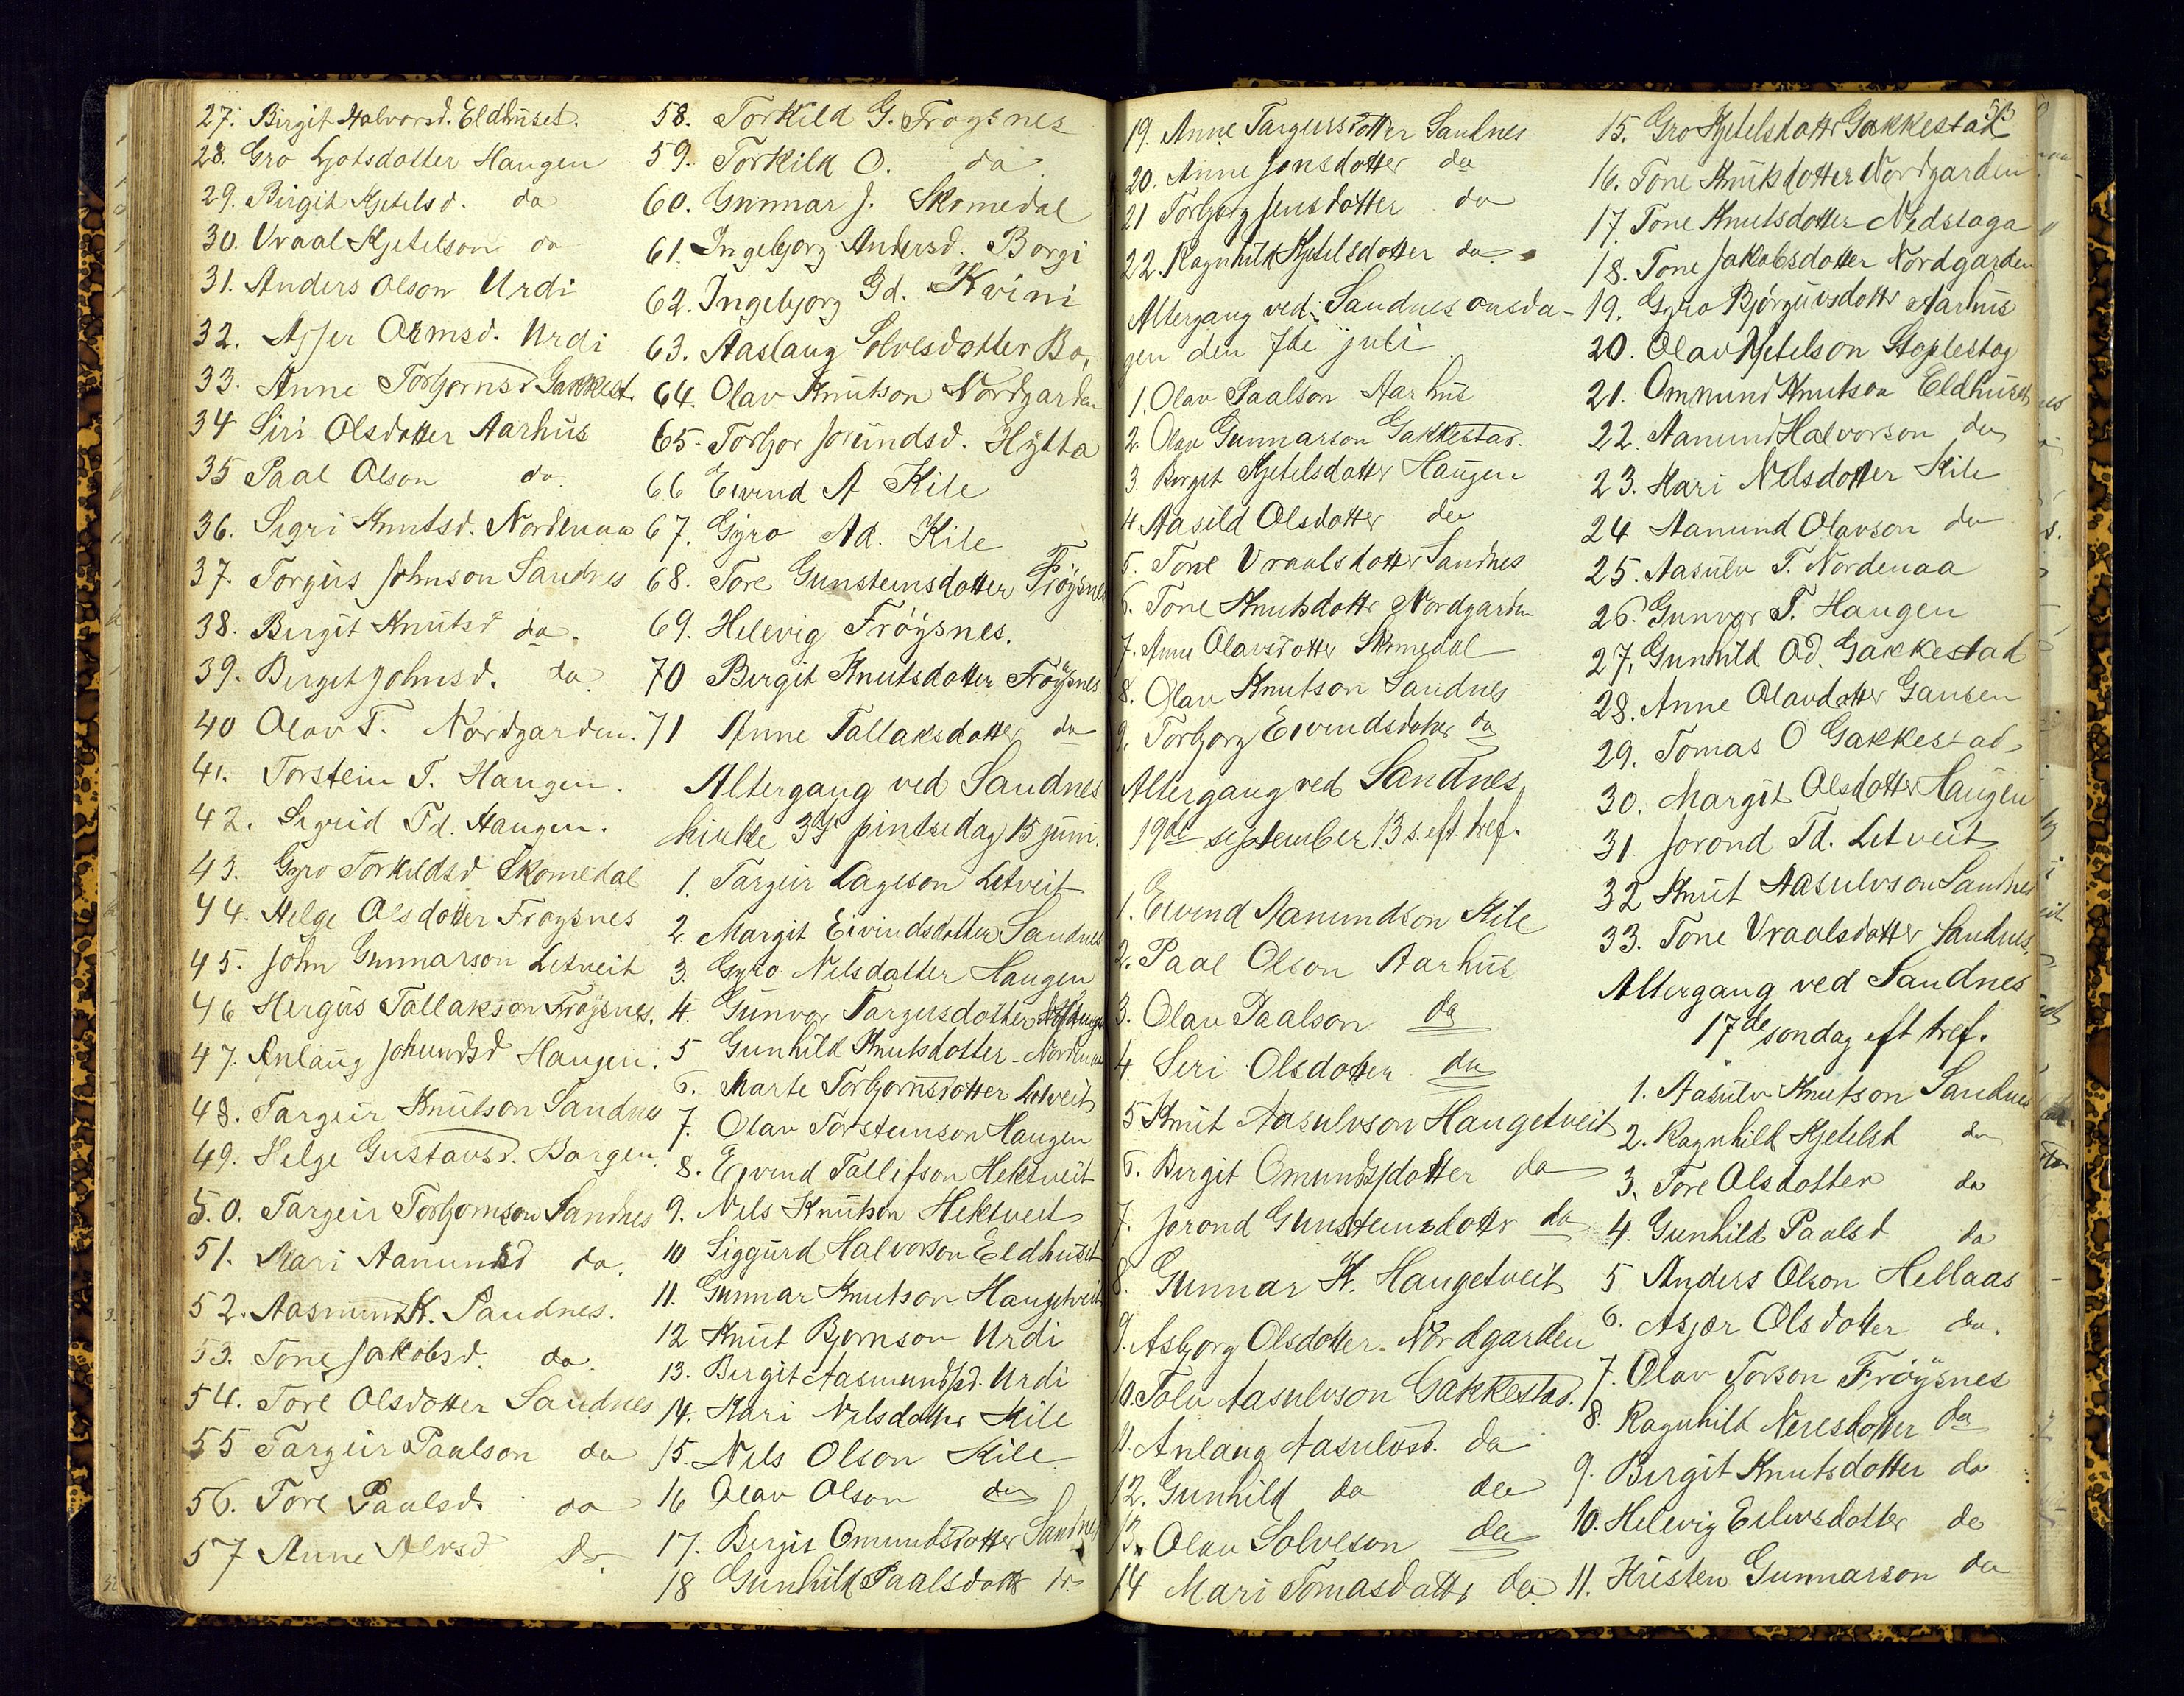 27. Birgit Halvorsd. Eldhuset.
28. Gro Ljotsdotter Haugen
29. Birgit Kjetelsd. do
30. Vraal Kjetelson do
31. Anders Olson Urdi
32. Asjer Ormsd. Urdi
33. Anne Torbjornsd Gakkest.
34 Siri Olsdotter Aarhus
35 Paal Olson do.
36. Sigri Knutsd. Nordenaa
37. Torgus Johnson Sandnes
38. Birgit Knutsd do.
39. Birgit Johnsd. do.
40 Olav T. Nordgarden.
41. Torstein T. Haugen.
42. Sigrid Td. Haugen.
43. Gyro Torkildsd Skomedal
44. Helge Olsdotter Froysnes
45. John Gunnarson Letveit
46 Hergus Tallakson Frøysnes.
47. Anlaug Johundsd Haugen.
48. Targeir Knutson Sandnes
49. Helge Gustavsd. Borgen.
50. Targeir Torbjornson Sandnes
51. Mari Aamundsd do.
52. Aasmund K. Sandnes.
53. Tone Jakobsd. do.
54. Tore Olsdotter Sandnes
55 Targeir Paalson do
56. Tore Paulsd. do
57 Anne Alvsd do.
58. Torkild G. Froysnes
59. Torkild O. do.
60. Gunnar J. Skomedal
61. Ingebjorg Andersd. Borgi
62. Ingebjorg Gd. Kvini
63. Aaslaug Solvesdotter Bo.
64. Olav Knutson Nordgarden
65. Torbjor Jorundsd. Hytta
66 Eivind A Kile
67. Gyro Ad. Kile
68. Tore Gunsteinsdotter Frøysnes
69. Helevig Frøysnes.
70 Birgit Knutsdotter Frøysnes.
71 Anne Tallaksdotter do
Altergang ved Sandnes
kirke 3dj pintsedag 15 juni.
1. Targeir Lageson Letveit
2. Margit Eivindsdotter Sandnes
3. Gyro Nilsdatter Haugen
4. Gunvor Targusdotter Haugen
5 Gunhild Knutsdotter - Nordenaa
6. Marte Torbjornsdotter Letveit
7. Olav Torsteinson Haugen
8. Eivind Tallefson Hektveit
9. Nils Knutson Hektveit
10 Siggurd Halvorson Eldhuset
11. Gunnar Knutson Haugetveit
12 Knut Bjornson Urdi
13. Birgit Aasmundsd. Urdi
14. Kari Nilsdotter Kile
15. Nils Olson Kile
16 Olav Olson do
17. Birgit Omundsdotter Sandnes
18 Gunhild Paalsdottr do
19. Anne Targussdotter Sandnes
20. Anne Jonsdotter do
21 Torbjorg Jensdotter do
22. Ragnhild Kjetelsdotter do.
Altergang ved Sandnes onsda-
gen den 7de juli
1. Olav Paalson Aarhus
2. Olav Gunnarson Gakkestad.
3. Birgit Kjetelsdotter Haugen
4. Aasild Olsdotter do
5. Tone Vraalsdotter Sandnes
6. Tone Knutsdottr Nordgarden
7. Anne Olavsdotter Skomedal
8. Olav Knutson Sandnes
9. Torbjorg Eivindsdotter do
Altergang ved Sandnes
19de september 13 s. eft. tref.
1. Eivind Aanundson Kile
2. Paal Olson Aarhus
3. Olav Paalson do
4. Seri Olsdotter do
5 Knut Aasulvson Haugetveit
6. Birgit Omundsdotter do
7. Jorond Gunsteinsdottr do
8. Gunnar K. Haugetveit
9. Asbjorg Olsdotter. Nordgarden
10. Tolv Aasulvson Gakkestad.
11. Anlaug Aasulvsd. do
12. Gunhild do do
13. Olav Solveson do
14 Mari Tomasdottr do.
53
15. Gro Kjetelsdottr Gakkestad
16. Tone Knutsdotter Nordgarden
17. Tone Knutsdotter Nedstaga
18. Tone Jakobsdotter Nordgarden
19. Gyro Bjørgulvsdottr Aarhus
20. Olav Kjetelson Stoplestog
21. Ommund Knutson Eldhuset
22. Aanund Halvorson do
23. Kari Nilsdotter Kile
24 Aanund Olavson do
25. Aasulv T. Nordenaa
26. Gunvor T. Haugen
27. Gunhild Od. Gakkestad
28. Anne Olavdotter Gausen
29. Tomas O Gakkestad
30. Margit Olsdotter Haugen
31 Jorond Td. Letveit
32 Knut Aasulvson Sandnes
33. Tone Vraalsdotter Sandnes.
Altergang ved Sandnes
17de sondag eft tref.
1. Aasulv Knutson Sandnes
2. Ragnhild Kjetelsd do
3. Tore Olsdotter do
4. Gunhild Paalsd do
5 Anders Olson Hellaas
6. Asjær Olsdotter do.
7. Olav Torson Frøysnes
8. Ragnhild Neresdotter do
9. Birgit Knutsdotter do
10. Helevig Eilevsdotter do
11. Kristen Gunnarson do